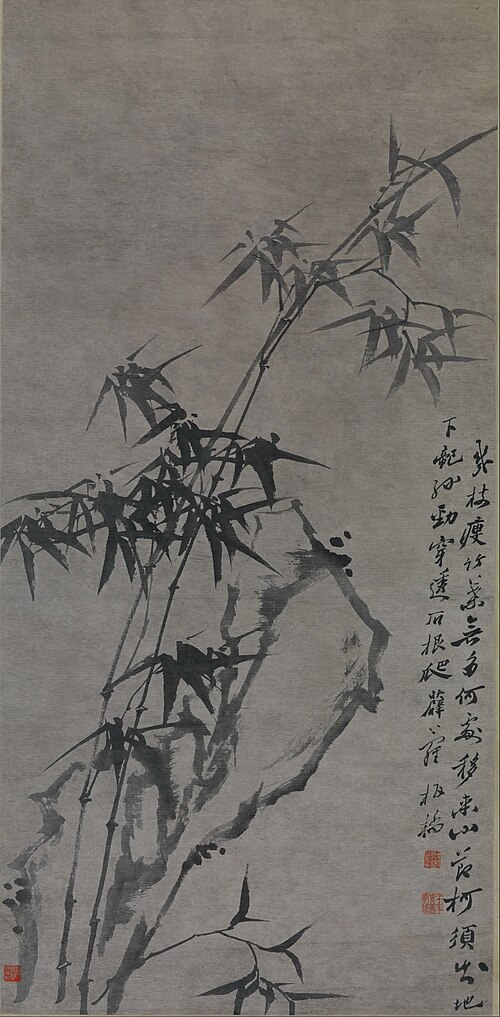 幾枝瘦竹葉無多何處移來山柯須出地
下孫勁穿透石根爬薜蘿 板橋